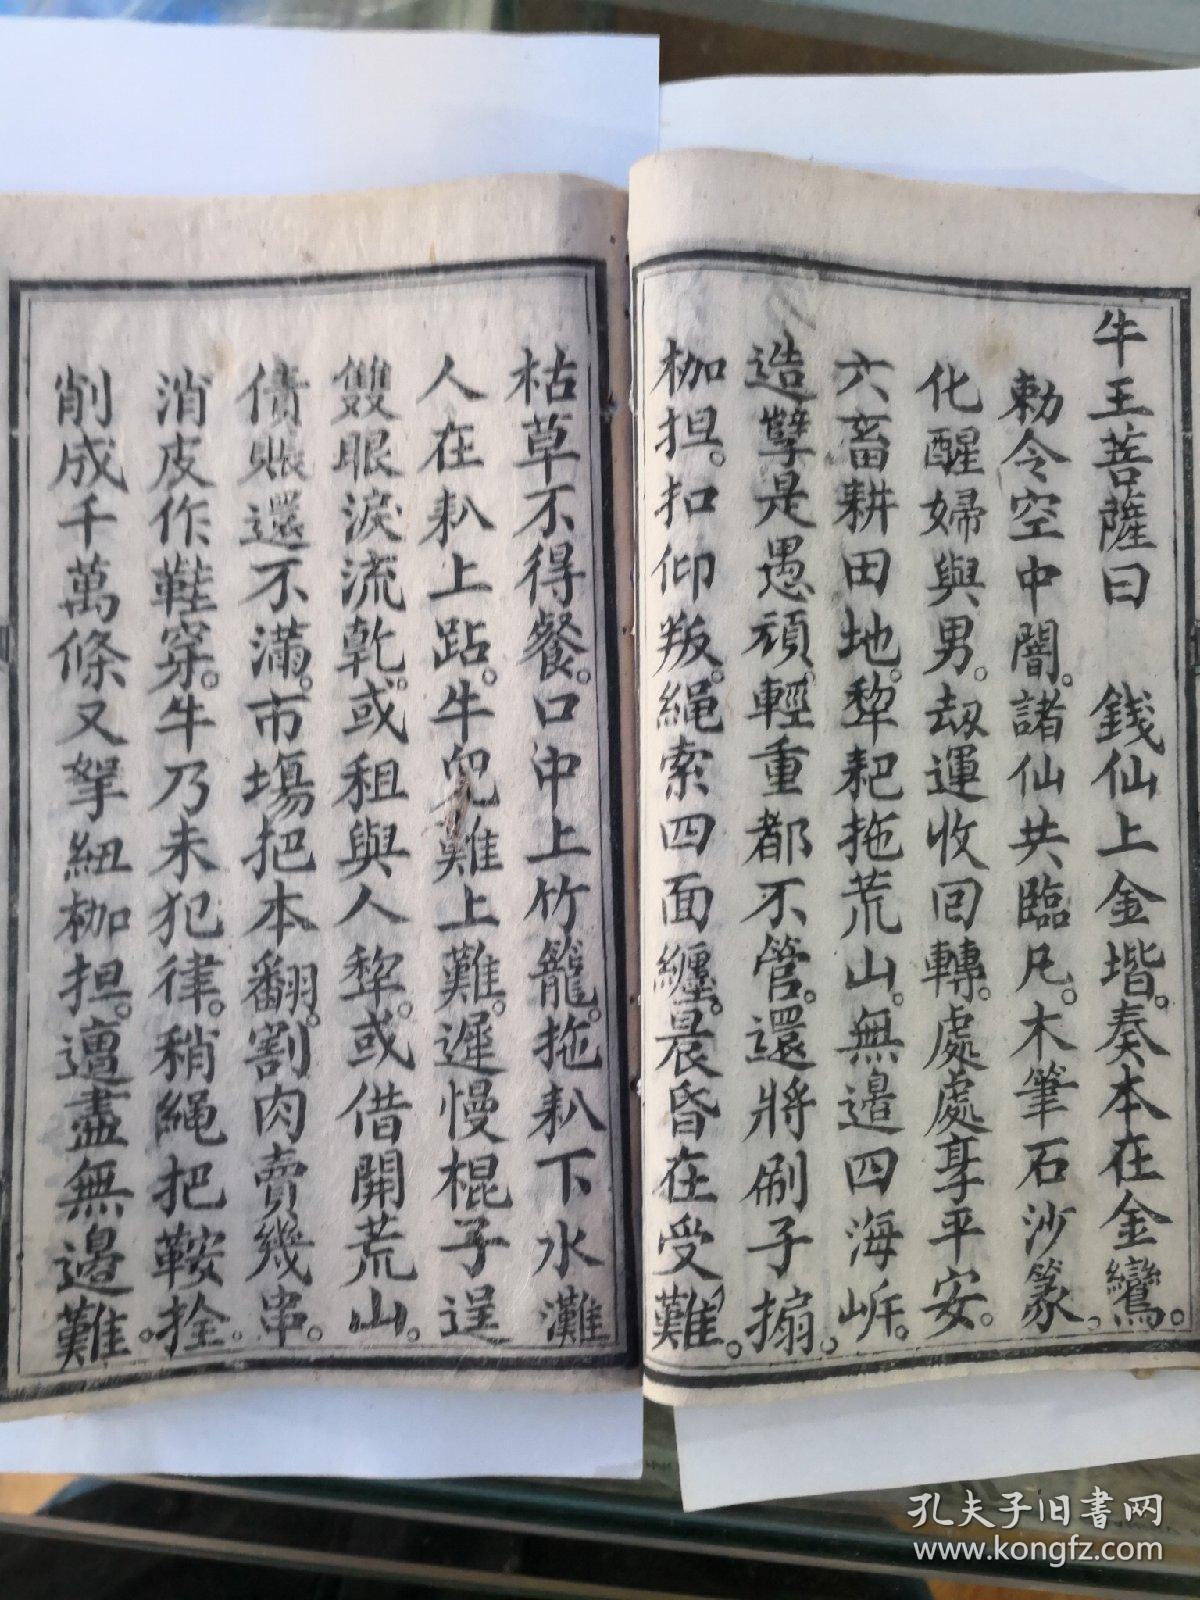 牛王菩薩曰　錢仙上金堦。奏本在金鸞。
勅令空中闇。諸仙共臨凡。木筆石沙篆。
化醒婦與男。劫運收回轉。處處享平安。
六畜耕田地。犂耙拖荒山。無邉四海岍。
造孽是愚頑。輕重都不管。還將刷子搧。
枷担。扣仰叛。繩索四面纏。晨昏在受難。
枯草不得餐。口中上竹籠。拖耖下水灘
人在耖上跕。牛兒難上難。遲慢棍子逞
雙眼淚流乾。或租與人犂。或借開荒山。
債賬還不滿。市塲把本翻。割肉賣幾串。
消皮作鞋穿。牛乃未犯律。稍繩把鞍拴。
削成千萬條又拏紐枷担。遭盡無邉難。
孔夫子旧书网
www.kongfz.com